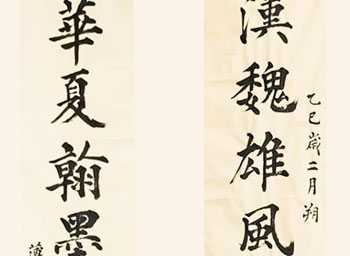 漢魏雄風
乙巳歲二月朔
華夏翰墨